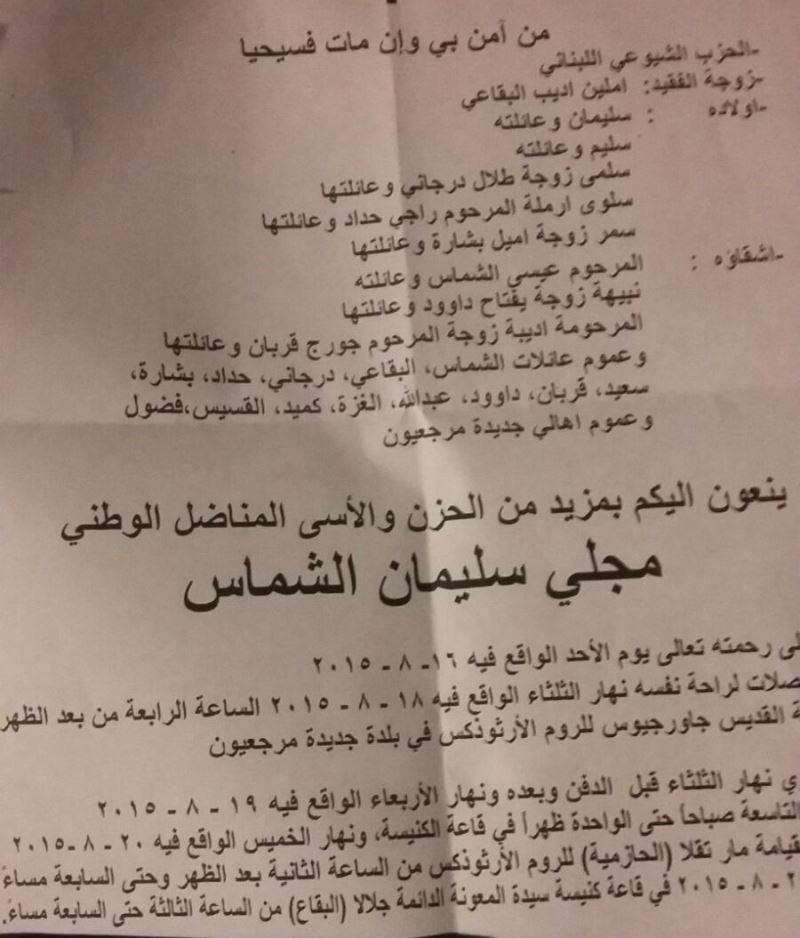 من آمن بي وإن مات فسيحيا
-الحزب الشيوعي اللبناني
-زوجة الفقيد: املين اديب البقاعي
-اولاده : سليمان وعائلته
سليم وعائلته
سلمى زوجة طلال درجاني وعائلتها
سلوى ارملة المرحوم راجي حداد وعائلتها
سمر زوجة اميل بشارة وعائلتها
-اشقاؤه : المرحوم عيسى الشماس وعائلته
نبيهة زوجة يفتاح داوود وعائلتها
المرحومة اديبة زوجة المرحوم جورج قربان وعائلتها
وعموم عائلات الشماس، البقاعي، درجاني، حداد، بشارة،
سعيد، قربان، داوود، عبدالله، الغزة، كميد، القسيس،فضول
وعموم اهالي جديدة مرجعيون
ينعون اليكم بمزيد من الحزن والأسى المناضل الوطني
مجلي سليمان الشماس
لى رحمته تعالى يوم الأحد الواقع فيه ١٦- ٨ - ٢٠١٥
صلات لراحة نفسه نهار الثلثاء الواقع فيه ١٨ - ٨ - ٢٠١٥ الساعة الرابعة من بعد الظهر
ة القديس جاورجيوس للروم الأرثوذكس في بلدة جديدة مرجعيون
ي نهار الثلثاء قبل الدفن وبعده ونهار الأربعاء الواقع فيه ١٩ - ٨ - ٢٠١٥
التاسعة صباحاً حتى الواحدة ظهراً في قاعة الكنيسة، ونهار الخميس الواقع فيه ٢٠ - ٨ -٢٠١٥
قيامة مار تقلا (الحازمية) للروم الأرثوذكس من الساعة الثانية بعد الظهر وحتى السابعة مساءً
٢ - ٨ - ٢٠١٥ في قاعة كنيسة سيدة المعونة الدائمة جلالا (البقاع) من الساعة الثالثة حتى السابعة مساءً.